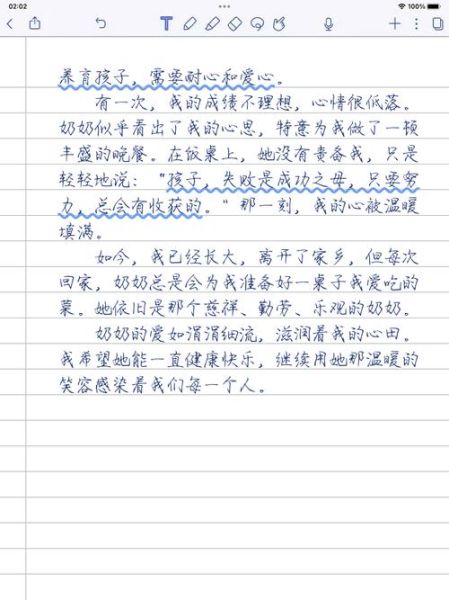 02:02
100%
T
养育孩子，需要耐心和爱心。
有一次，我的成绩不理想，心情很低落。
奶奶似乎看出了我的心思，特意为我做了一顿
丰盛的晚餐。在饭桌上，她没有责备我，只是
轻轻地说：“孩子，失败是成功之母，只要努
力，总会有收获的。”那一刻，我的心被温暖
填满。
如今，我已经长大，离开了家乡，但每次
回家，奶奶总是会为我准备好一桌子我爱吃的
菜。她依旧是那个慈祥、勤劳、乐观的奶奶。
奶奶的爱如涓涓细流，滋润着我的心田。
我希望她能一直健康快乐，继续用她那温暖的
笑容感染着我们每一个人。